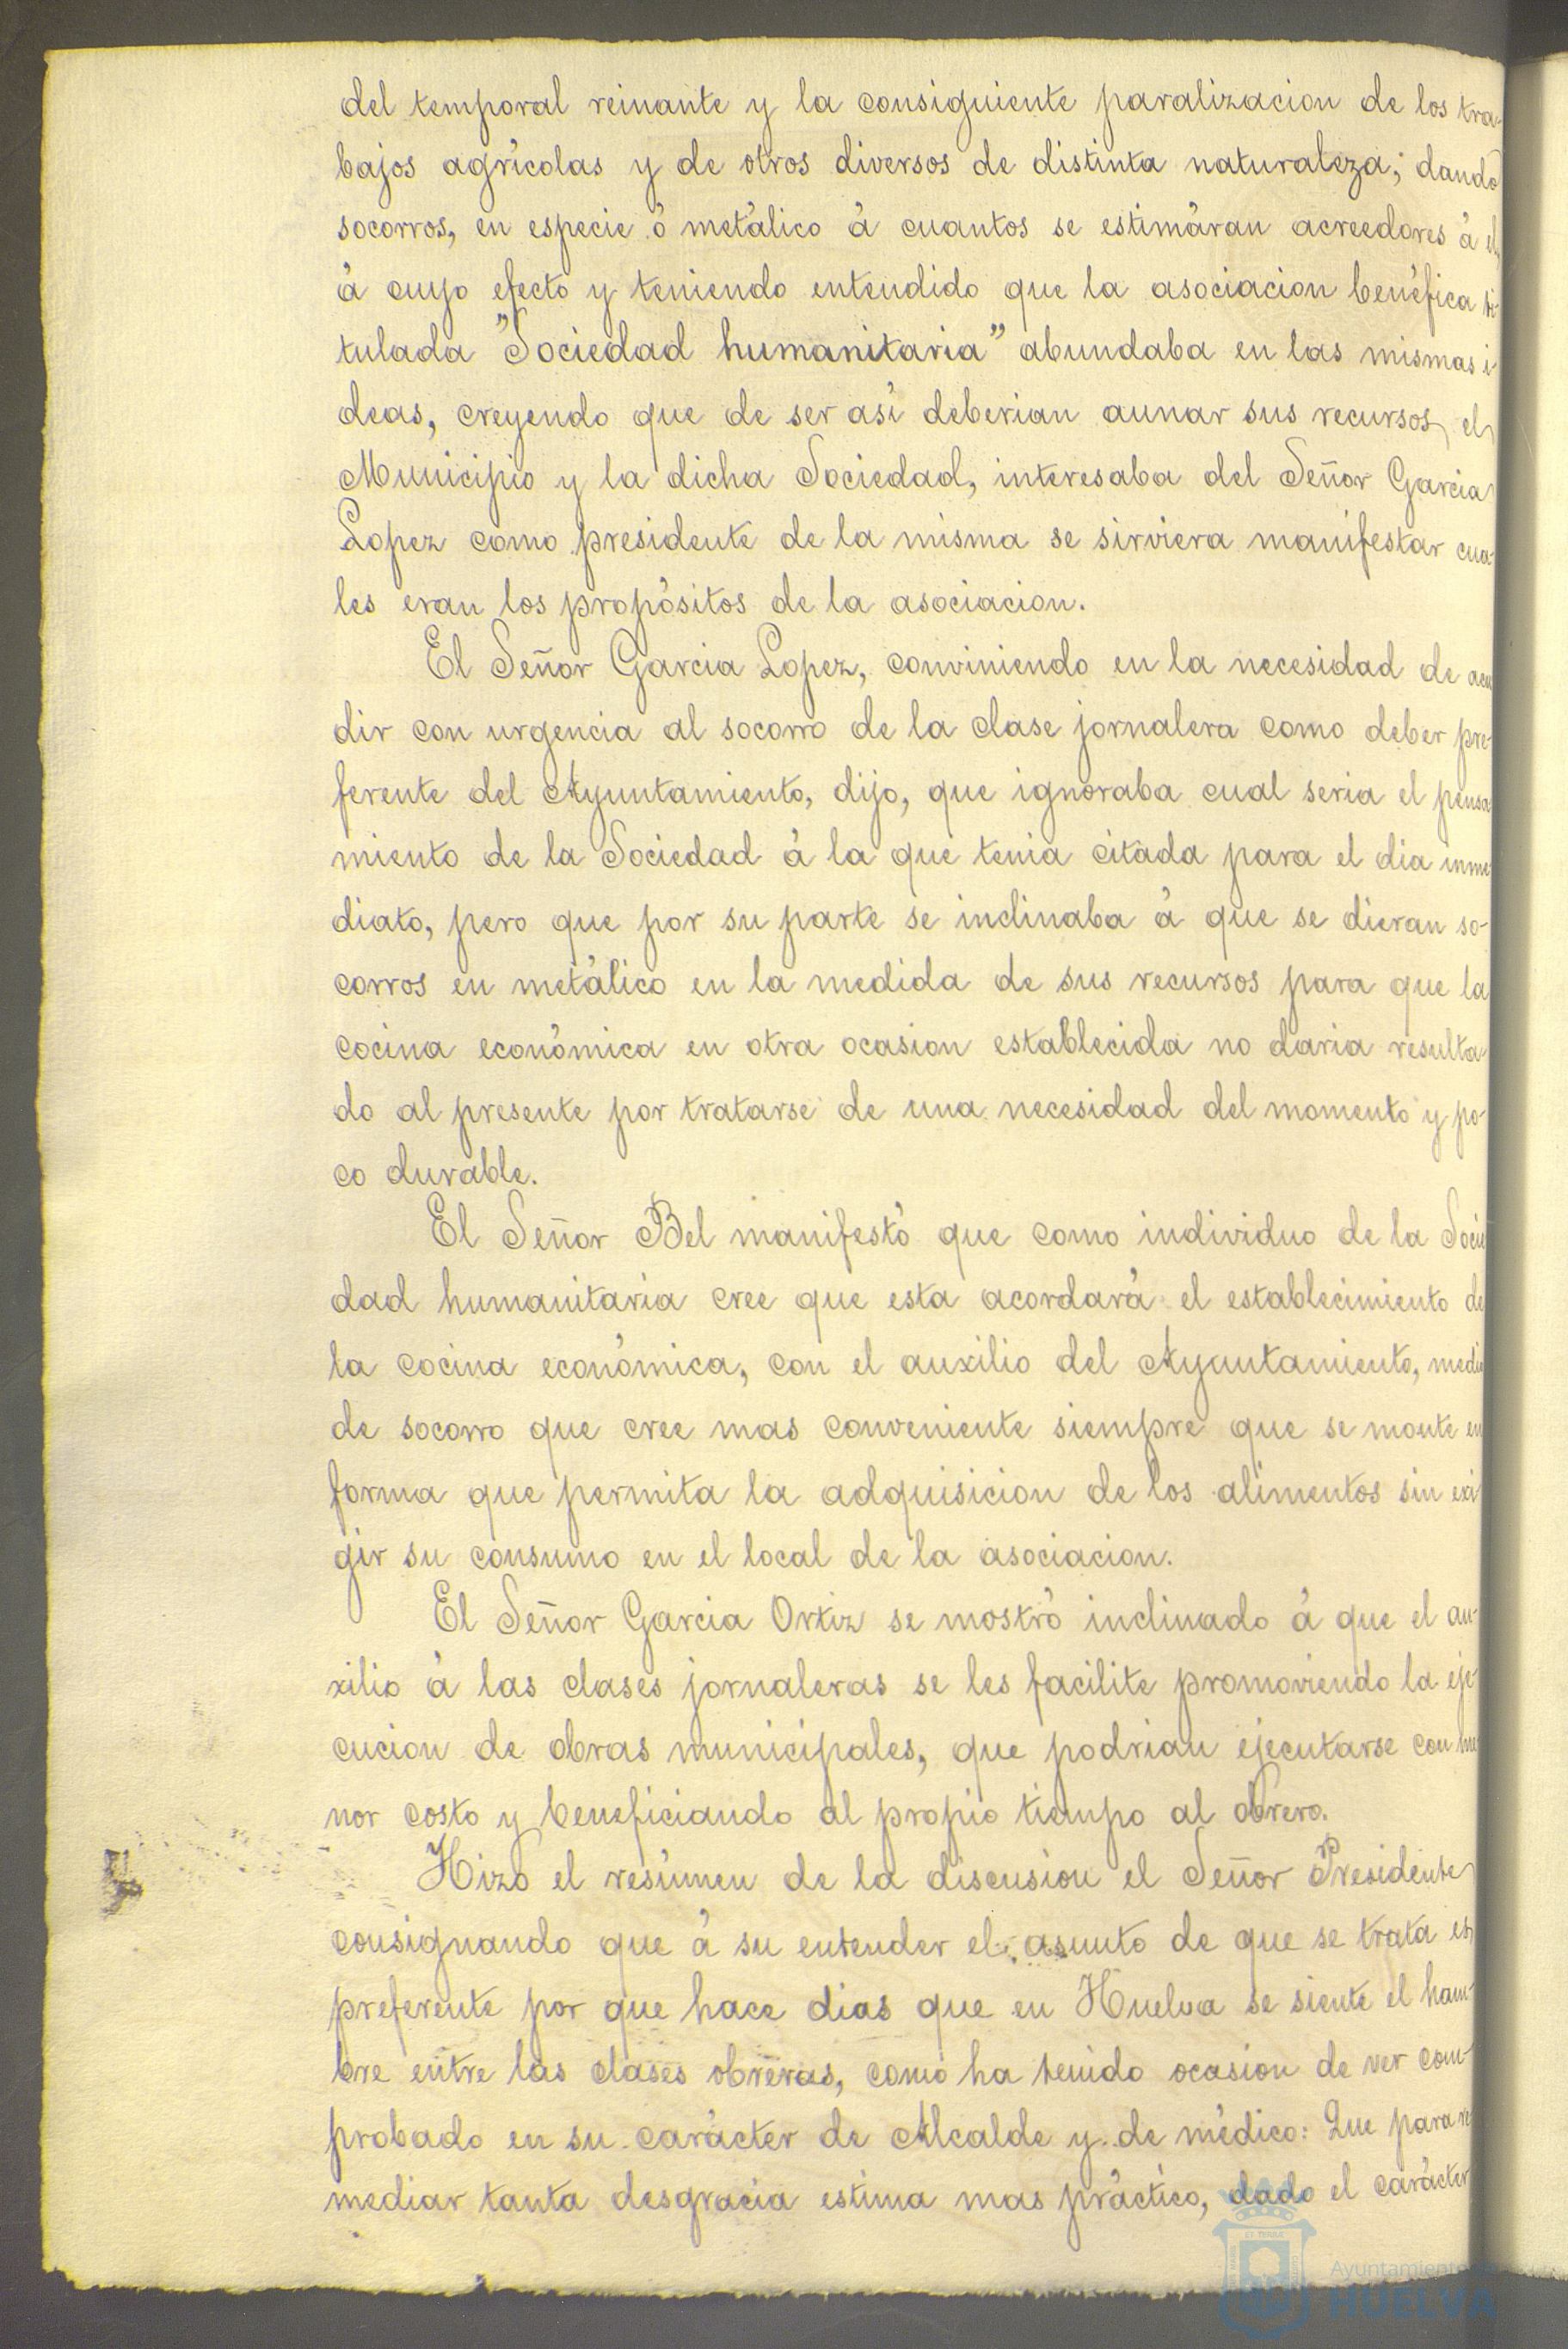 del temporal reinante y la consiguiente paralizacion de los tra-
bajos agrícolas y de otros diversos de distinta naturaleza; dando
socorros, en especie ó metálico á cuantos se estimáran acreedores á
á cuyo efecto y teniendo entendido que la asociacion benéfica ti-
tulada "Sociedad humanitaria" abundaba en las mismas i-
deas, creyendo que de ser así deberian aunar sus recursos, el
Municipio y la dicha Sociedad, interesaba del Señor Garcia
Lopez como presidente de la misma se sirviera manifestar cua-
les eran los propósitos de la asociacion.
El Señor Garcia Lopez, conviniendo en la necesidad de acu
dir con urgencia al socorro de la clase jornalera como deber pre-
ferente del Ayuntamiento, dijo, que ignoraba cual seria el pensa
miento de la Sociedad á la que tenia citada para el dia inme
diato, pero que por su parte se inclinaba á que se dieran so-
corros en metálico en la medida de sus recursos para que la
cocina económica en otra ocasion establecida no daria resulta-
do al presente por tratarse de una necesidad del momento y po-
co durable.
El Señor Bel manifestó que como individuo de la Socie
dad humanitaria cree que esta acordará el establecimiento de
la cocina económica, con el auxilio del Ayuntamiento, medio
de socorro que cree mas conveniente siempre que se monte en
forma que permita la adquisicion de los alimentos sin exi
gir su consumo en el local de la asociacion.
El Señor Garcia Ortiz se mostró inclinado á que el au-
xilio á las clases jornaleras se les facilite promoviendo la eje-
cucion de obras municipales, que podrian ejecutarse con me
nor costo y beneficiando al propio tiempo al obrero.
Hizo el resúmen de la discusion el Señor Presidente
consignando que á su entender el asunto de que se trata es
preferente por que hace dias que en Huelva se siente el ham-
bre entre las clases obreras, como ha tenido ocasion de ver com-
probado en su carácter de Alcalde y de médico: Que para re
mediar tanta desgracia estima mas práctico, dado el carácter
Ayuntamiento de
HUELVA